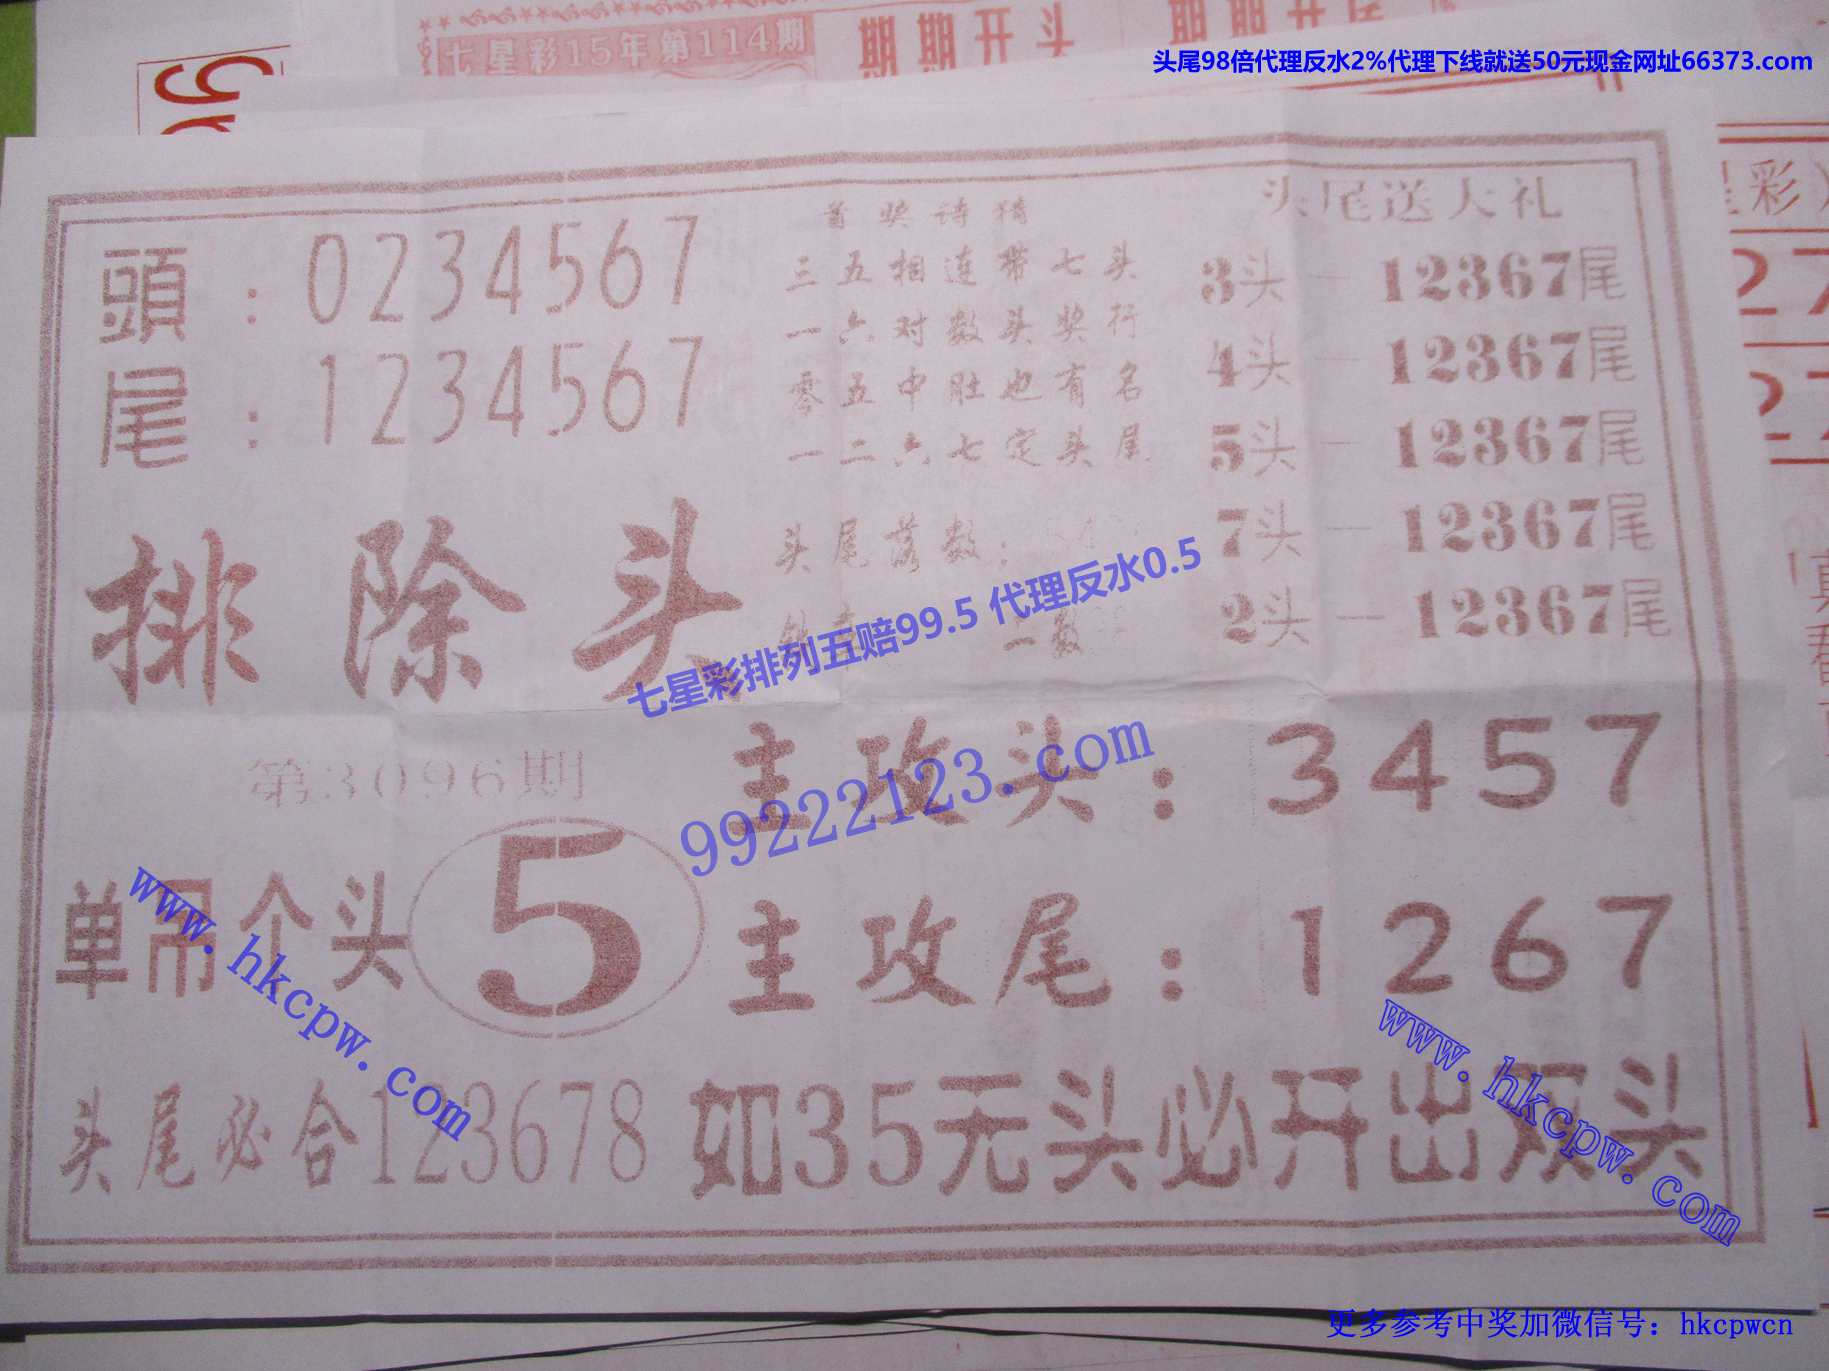 七星彩15年第114期
期期开头
头尾98倍代理反水2%代理下线就送50元现金网址66373.com
頭：0234567
尾：1234567
首奖诗猜
三五相连带七头
一六对数头奖行
零五中肚也有名
一二六七定头尾
头尾落数：
二数
头尾送大礼
3头—12367尾
4头—12367尾
5头—12367尾
7头—12367尾
2头—12367尾
排除头
七星彩排列五赔99.5 代理反水0.5
99222123.com
第3096期
单吊个头 5
主攻头：3457
主攻尾：1267
www.hkcpw.com
www.hkcpw.com
头尾必合123678
如35无头必开出双头
更多参考中奖加微信号：hkcpwcn